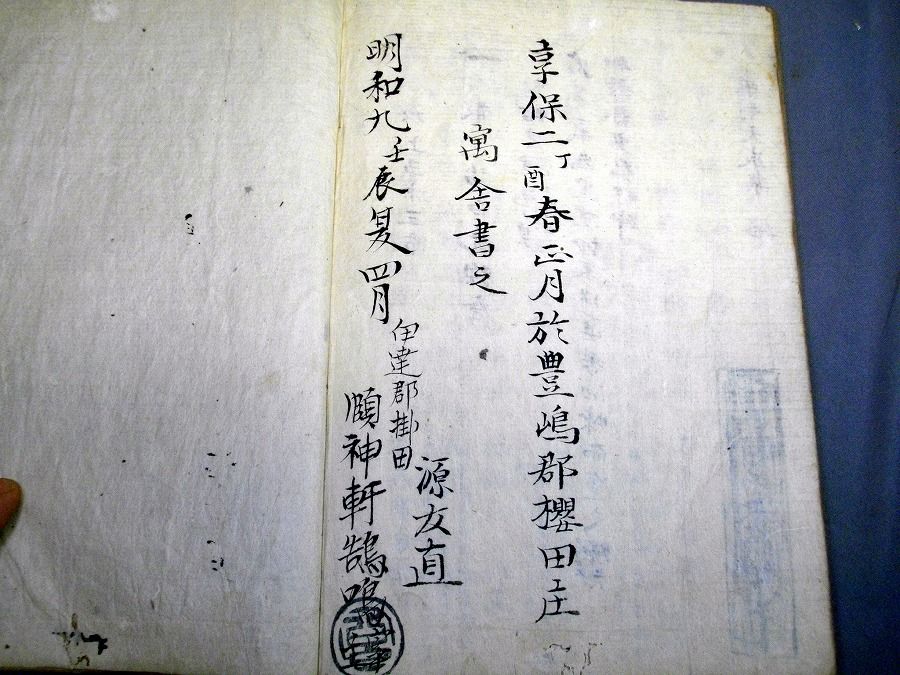 享保二丁酉春正月於豊嶋郡櫻田庄
寓舎書之
源友直
明和九壬辰夏四月
伊達郡掛田
頤神軒鵠鳴